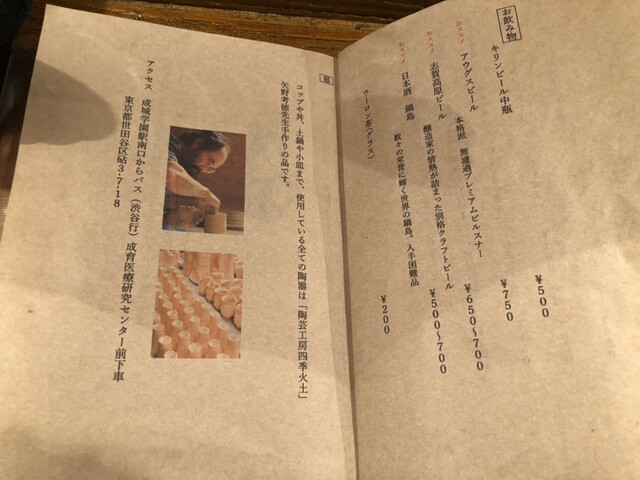 お飲み物
キリンビール中瓶 ¥500
おススメ アウグスビール 本格派 無濾過プレミアムピルスナー ¥750
おススメ 志賀高原ビール 醸造家の情熱が詰まった別格クラフトビール ¥650〜700
おススメ 日本酒 鍋島 数々の栄誉に輝く世界の鍋島。入手困難品 ¥500〜700
ウーロン茶(グラス) ¥200
コップや丼、土鍋や小皿まで、使用している全ての陶器は「陶芸工房四季火土」
矢野孝徳先生手作りの品です。
アクセス 成城学園駅南口からバス(渋谷行)成育医療研究センター前下車
東京都世田谷区砧3-7-18